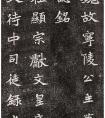 魏故寧陵公主墓
誌銘
祖顯宗獻文皇
父侍中司徒錄